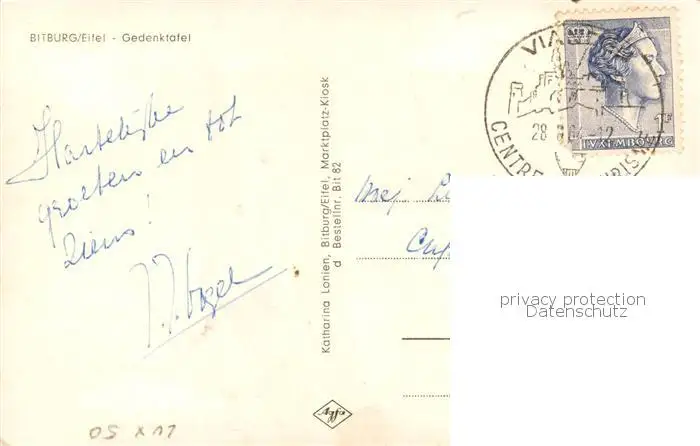 BITBURG/Eifel - Gedenktafel
Hartelijke
groeten en tot
ziens!
Katharina Lonien, Bitburg/Eifel, Marktplatz-Kiosk
d Bestellnr. Bit 82
Mej
VIA
CENTRE
28
12
1F
LUXEMBOURG
privacy protection
Datenschutz
Agfa
05 X 11